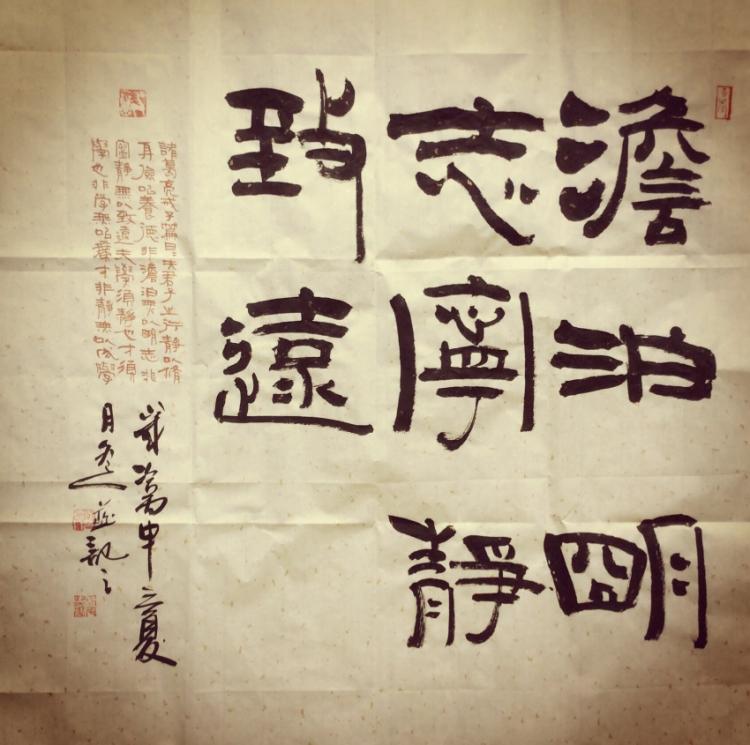 澹泊明
志寧靜
致遠
諸葛亮戒子篇曰夫君子之行靜以脩
身儉以養德非澹泊無以明志非
寧靜無以致遠夫學須靜也才須
學也非學無以廣才非靜無以成學
歲次丙申夏
月並記之